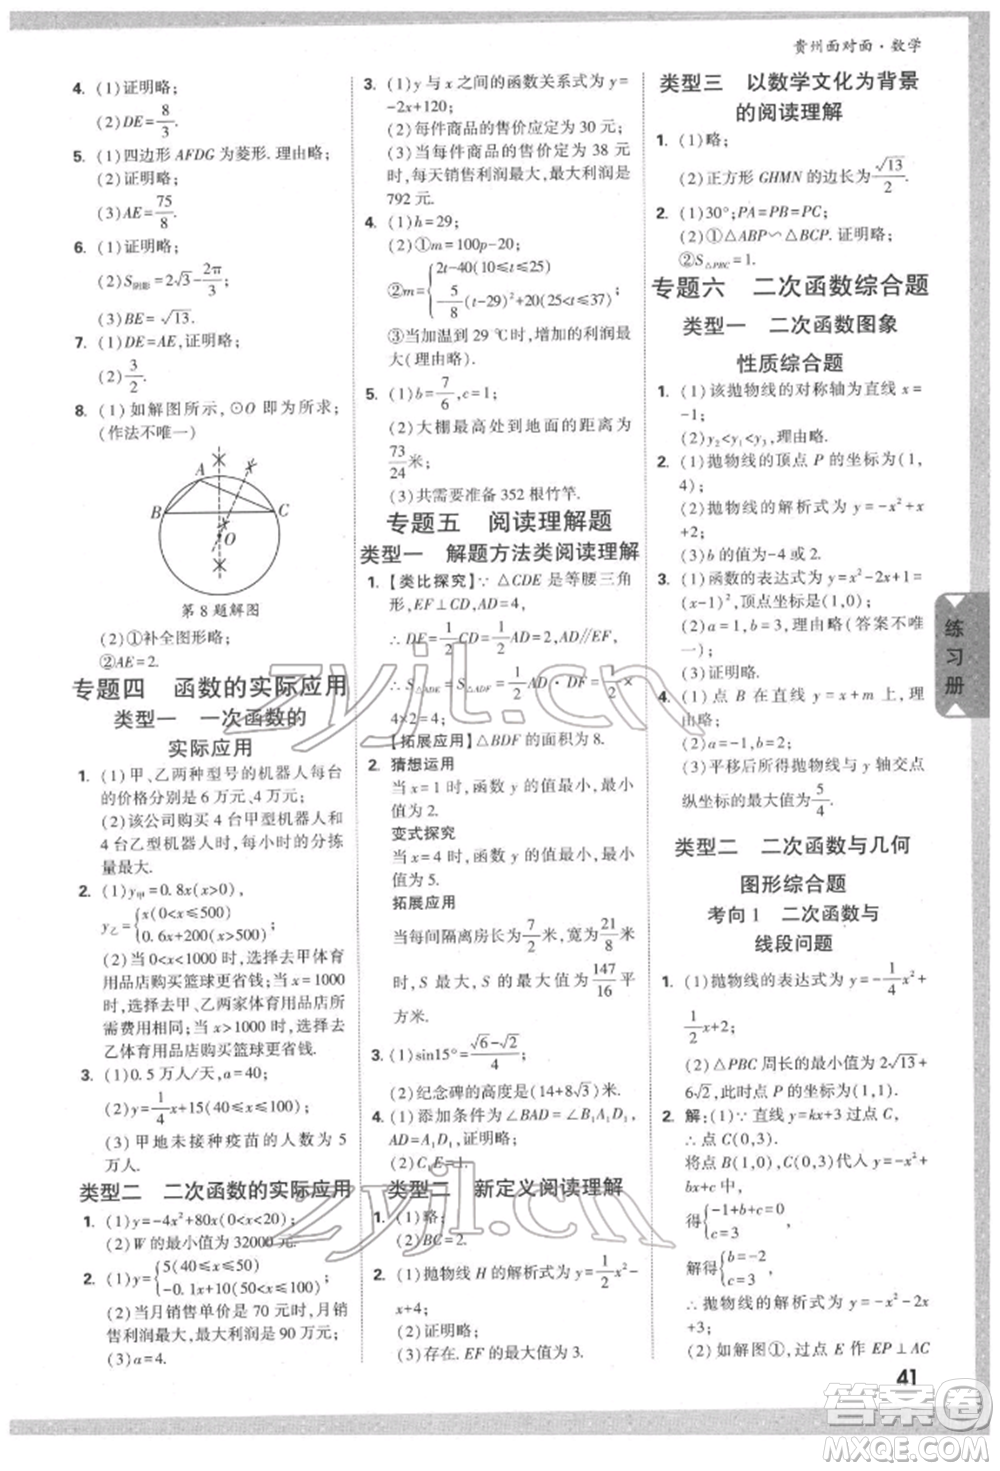 贵州面对面·数学
4. (1)证明略;
(2)DE=8/3.
5. (1)四边形 AFDG 为菱形.理由略;
(2)证明略;
(3)AE=75/8.
6. (1)证明略;
(2)S阴影=2√3-2π/3;
(3)BE=√13.
7. (1)DE=AE,证明略;
(2)3/2.
8. (1)如解图所示,⊙O 即为所求;
(作法不唯一)
A
B
C
O
第 8 题解图
(2)①补全图形略;
②AE=2.
专题四 函数的实际应用
类型一 一次函数的
实际应用
1. (1)甲、乙两种型号的机器人每台
的价格分别是 6 万元、4 万元;
(2)该公司购买 4 台甲型机器人和
4 台乙型机器人时,每小时的分拣
量最大.
2. (1)y甲=0.8x(x>0)
y乙={x(0<x≤500)
0.6x+200(x>500);
(2)当 0<x<1000 时,选择甲体育用
品店购买篮球更省钱;当 x=1000
时,选择去甲、乙两家体育用品店所
需费用相同;当 x>1000 时,选择去
乙体育用品店购买篮球更省钱.
3. (1)0.5 万人/天,a=40;
(2)y=1/4x+15(40≤x≤100);
(3)甲地未接种疫苗的人数为 5
万人.
类型二 二次函数的实际应用
1. (1)y=-4x²+80x(0<x<20);
(2)W 的最小值为 32000 元.
2. (1)y={5(40≤x≤50)
-0.1x+10(50<x≤100);
(2)当月销售单价是 70 元时,月销
售利润最大,最大利润是 90 万元;
(3)a=4.
3. (1)y 与 x 之间的函数关系式为 y=
-2x+120;
(2)每件商品的售价应定为 30 元;
(3)当每件商品的售价定为 38 元
时,每天销售利润最大,最大利润为
792 元.
4. (1)h=29;
(2)①m=100p-20;
②m={2t-40(10≤t≤25)
5/8(t-29)²+20(25<t≤37);
③当加温到 29 ℃时,增加的利润最
大(理由略).
5. (1)b=7/6,c=1;
(2)大棚最高处到地面的距离为
73/24米;
(3)共需要准备 352 根竹竿.
专题五 阅读理解题
类型一 解题方法类阅读理解
1. 【类比探究】∵△CDE 是等腰三角
形,EF⊥CD,AD=4,
∴DE=1/2CD=1/2AD=2,AD∥EF,
∴S△ADE=S△ADF=1/2AD·DF=1/2×
4×2=4;
【拓展应用】△BDF 的面积为 8.
2. 猜想运用
当 x=1 时,函数 y 的值最小,最小
值为 2.
变式探究
当 x=4 时,函数 y 的值最小,最小
值为 5.
拓展应用
当每间隔离房长为7/2米,宽为21/8米
时,S 最大,S 的最大值为147/16平
方米.
3. (1)sin15°=√6-√2/4;
(2)纪念碑的高度是(14+8√3)米.
4. (1)添加条件为∠BAD=∠B₁A₁D₁,
AD=A₁D₁,证明略;
(2)C₁E=1.
类型二 新定义阅读理解
1. (1)略;
(2)BC=2.
2. (1)抛物线 H 的解析式为 y=1/2x²-
x+4;
(2)证明略;
(3)存在.EF 的最大值为 3.
类型三 以数学文化为背景
的阅读理解
1. (1)略;
(2)正方形 GHMN 的边长为√13/2.
2. (1)30°;PA=PB=PC;
(2)①△ABP∽△BCP.证明略;
②S△PBC=1.
专题六 二次函数综合题
类型一 二次函数图象
性质综合题
1. (1)该抛物线的对称轴为直线 x=
-1;
(2)y₂<y₁<y₃,理由略.
2. (1)抛物线的顶点 P 的坐标为(1,
4);
(2)抛物线的解析式为 y=-x²+x+
2;
(3)b 的值为 2-2√2.
3. (1)函数的表达式为 y=x²-2x+1=
(x-1)²,顶点坐标是(1,0);
(2)a=1,b=3,理由略(答案不唯
一);
(3)证明略.
4. (1)点 B 在直线 y=x+m 上,理
由略;
(2)a=-1,b=2;
(3)平移后所得抛物线与 y 轴交点
纵坐标的最大值为5/4.
类型二 二次函数与几何
图形综合题
考向 1 二次函数与
线段问题
1. (1)抛物线的表达式为 y=-1/4x²+
1/2x+2;
(2)△PBC 周长的最小值为 2√13+
6√2,此时点 P 的坐标为(1,1).
2. 解:(1)∵直线 y=kx+3 过点 C,
∴点 C(0,3).
将点 A(1,0),C(0,3)代入 y=-x²
+bx+c 中,
得{-1+b+c=0
c=3
解得{b=-2
c=3
∴抛物线的解析式为 y=-x²-2x+
3;
(2)如解图①,过点 E 作 EP⊥AC
练习册
41
zyjl.cn
zyjl.cn
答案圈
MXQE.COM